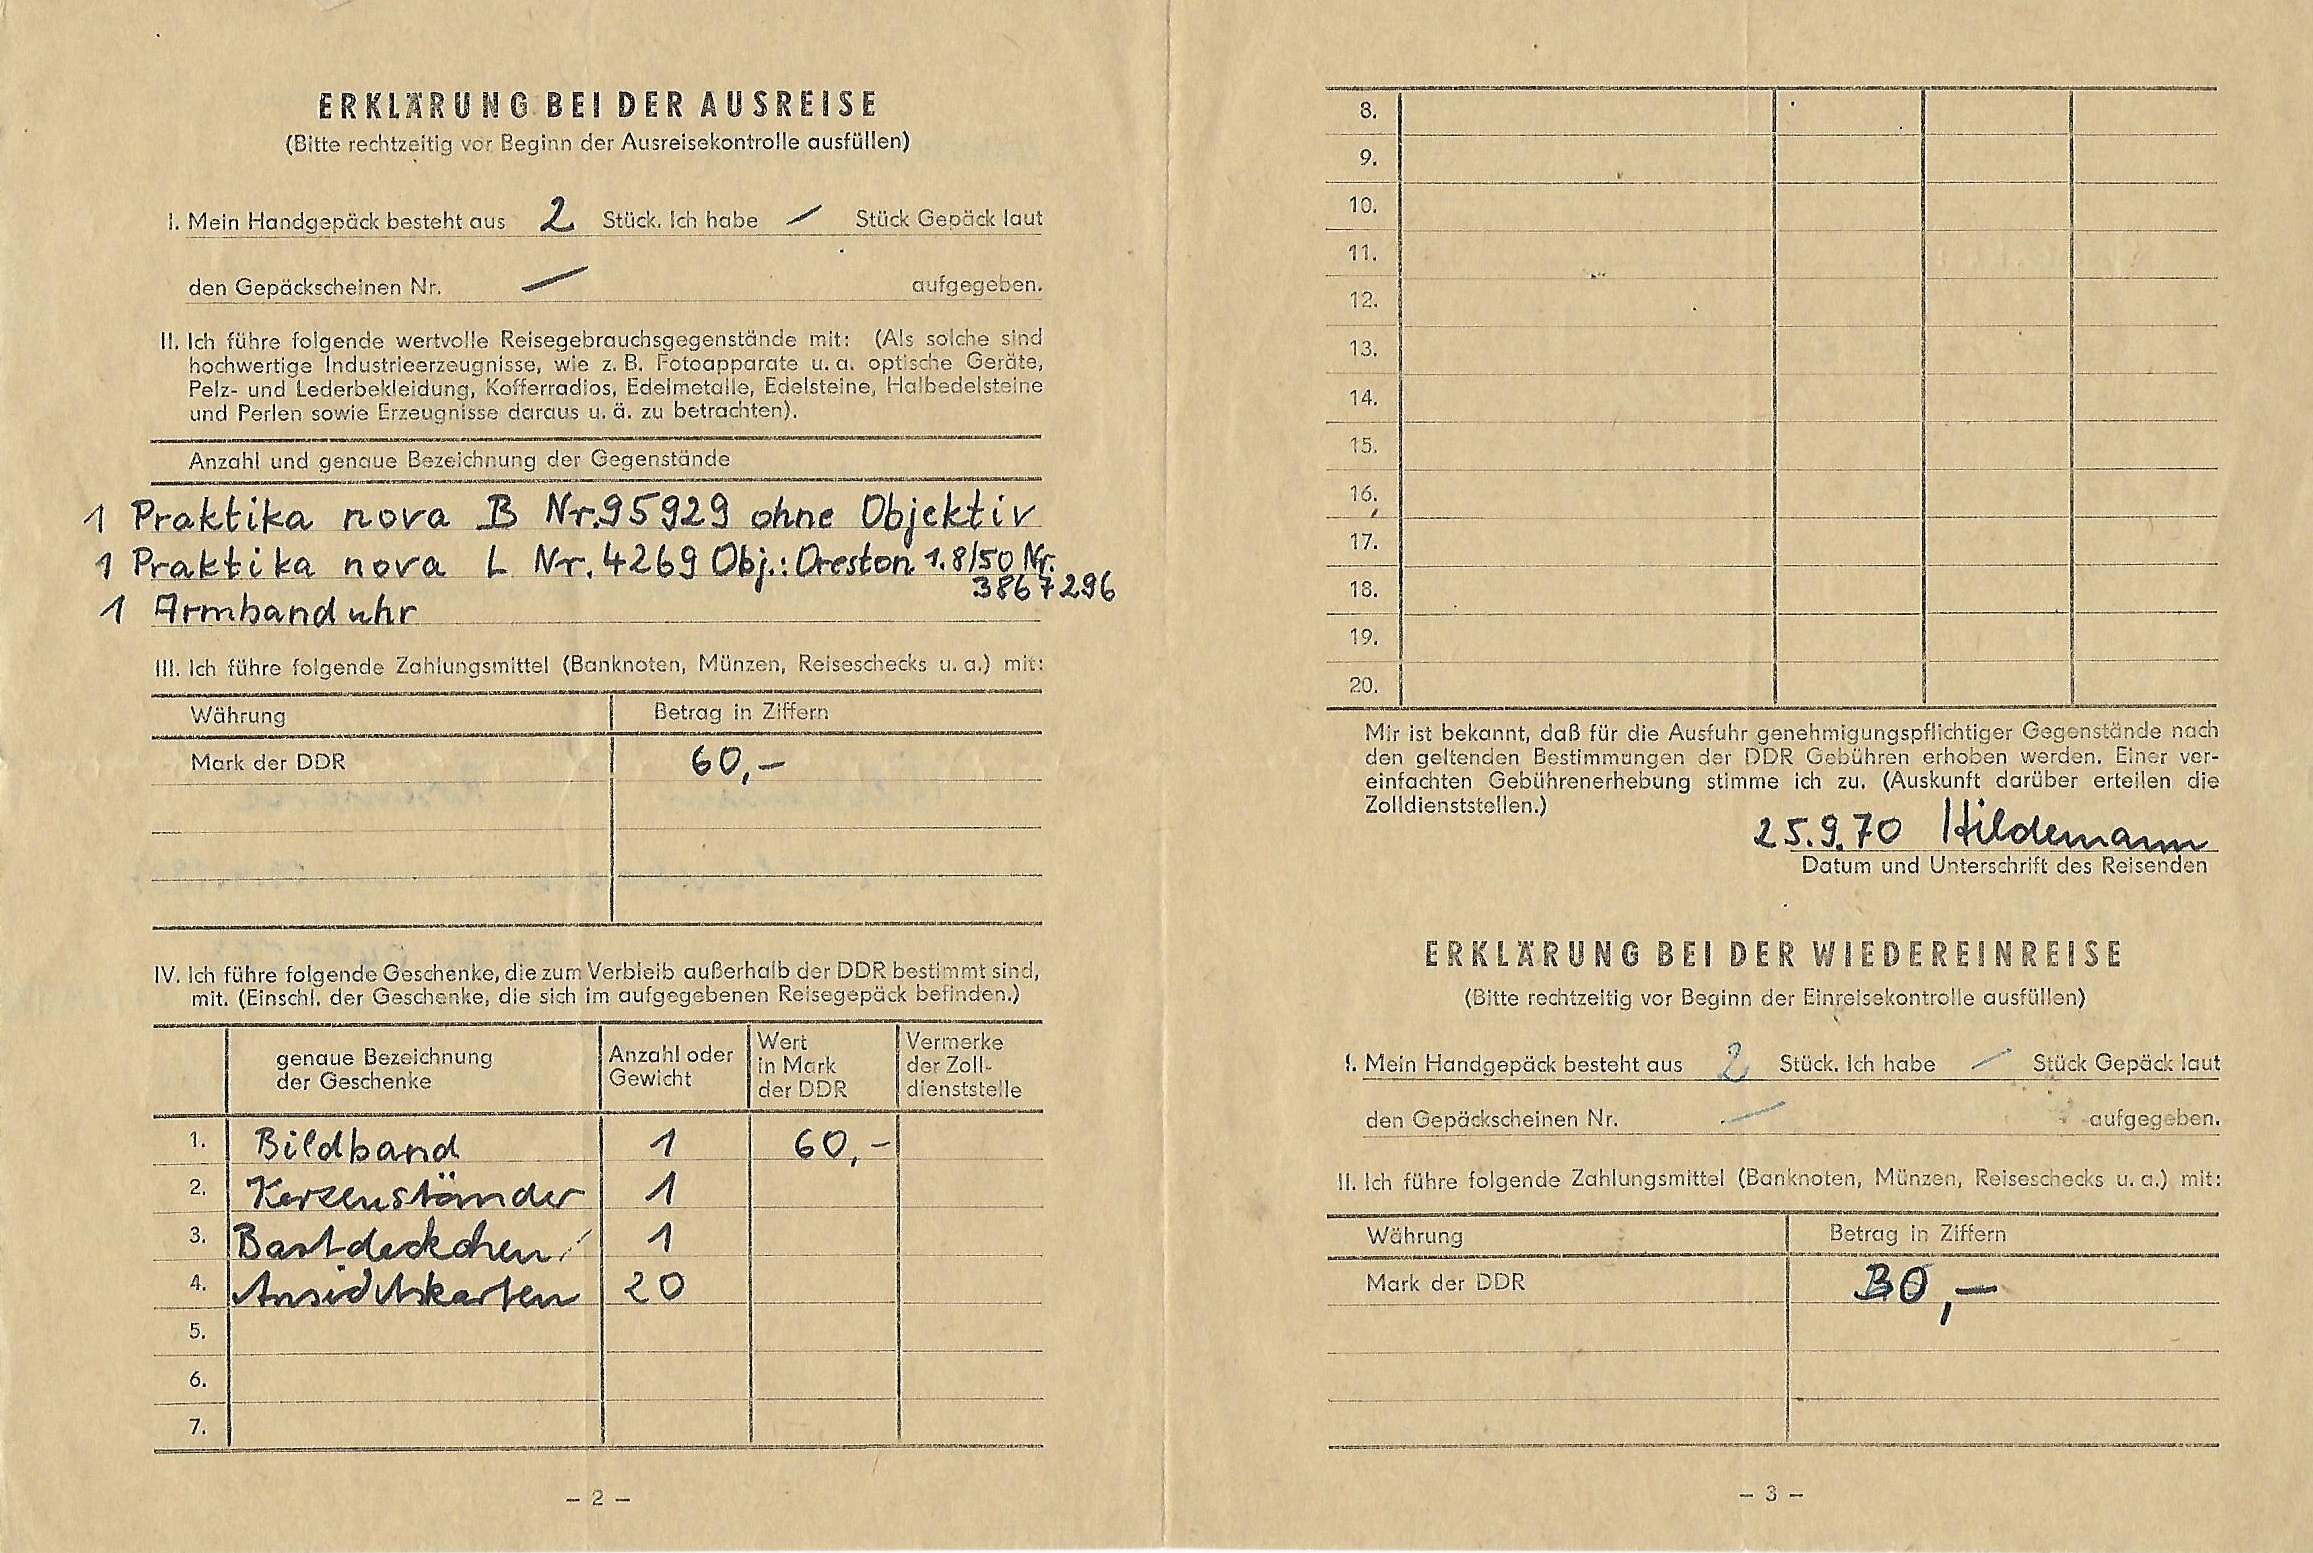 ERKLÄRUNG BEI DER AUSREISE
(Bitte rechtzeitig vor Beginn der Ausreisekontrolle ausfüllen)
I. Mein Handgepäck besteht aus 2 Stück. Ich habe — Stück Gepäck laut
den Gepäckscheinen Nr. — aufgegeben.
II. Ich führe folgende wertvolle Reisegebrauchsgegenstände mit: (Als solche sind
hochwertige Industrieerzeugnisse, wie z. B. Fotoapparate u. a. optische Geräte,
Pelz- und Lederbekleidung, Kofferradios, Edelmetalle, Edelsteine, Halbedelsteine
und Perlen sowie Erzeugnisse daraus u. ä. zu betrachten).
Anzahl und genaue Bezeichnung der Gegenstände
1 Praktika nova B Nr. 95929 ohne Objektiv
1 Praktika nova L Nr. 4269 Obj.: Oreston 1.8/50 Nr.
3867296
1 Armbanduhr
III. Ich führe folgende Zahlungsmittel (Banknoten, Münzen, Reiseschecks u. a.) mit:
Währung Betrag in Ziffern
Mark der DDR 60,—
IV. Ich führe folgende Geschenke, die zum Verbleib außerhalb der DDR bestimmt sind,
mit. (Einschl. der Geschenke, die sich im aufgegebenen Reisegepäck befinden.)
genaue Bezeichnung
der Geschenke
Anzahl oder
Gewicht
Wert
in Mark
der DDR
Vermerke
der Zoll-
dienststelle
1. Bildband 1 60,—
2. Kerzenständer 1
3. Bastdeckchen 1
4. Ansichtskarten 20
5.
6.
7.
– 2 –
8.
9.
10.
11.
12.
13.
14.
15.
16.
17.
18.
19.
20.
Mir ist bekannt, daß für die Ausfuhr genehmigungspflichtiger Gegenstände nach
den geltenden Bestimmungen der DDR Gebühren erhoben werden. Einer ver-
einfachten Gebührenerhebung stimme ich zu. (Auskunft darüber erteilen die
Zolldienststellen.)
25.9.70 Hildemann
Datum und Unterschrift des Reisenden
ERKLÄRUNG BEI DER WIEDEREINREISE
(Bitte rechtzeitig vor Beginn der Einreisekontrolle ausfüllen)
I. Mein Handgepäck besteht aus 2 Stück. Ich habe — Stück Gepäck laut
den Gepäckscheinen Nr. — aufgegeben.
II. Ich führe folgende Zahlungsmittel (Banknoten, Münzen, Reiseschecks u. a.) mit:
Währung Betrag in Ziffern
Mark der DDR
– 3 –